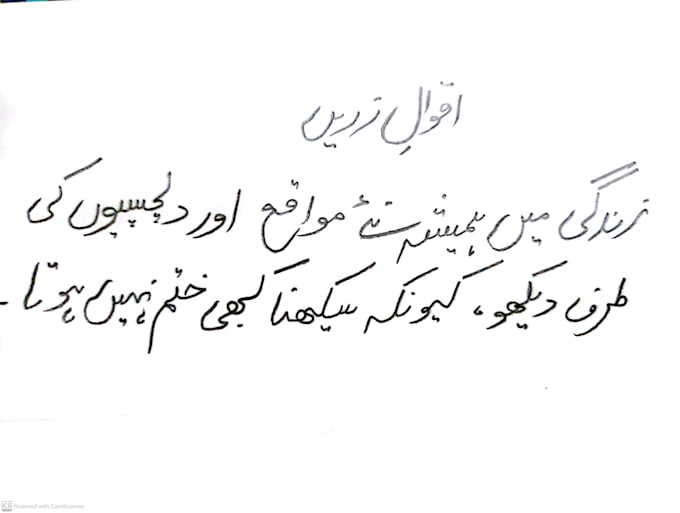 اقوالِ زریں
زندگی میں ہمیشہ نئے مواقع اور دلچسپیوں کی
طرف دیکھو، کیونکہ سیکھنا کبھی ختم نہیں ہوتا۔
CS Scanned with CamScanner